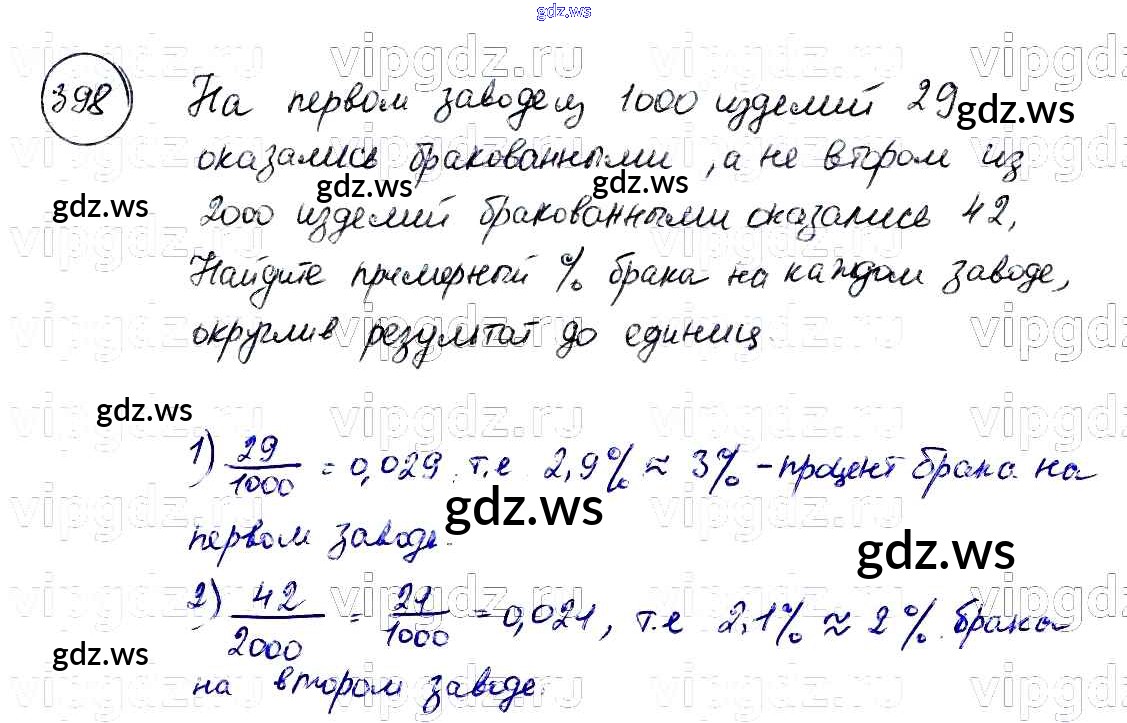 gdz.ws
398 На первом заводе из 1000 изделий 29
оказались бракованными, а не втором из
2000 изделий бракованными оказались 42,
Найдите примерный % брака на каждом заводе,
округлив результат до единиц.
1) 29/1000 = 0,029 т.е 2,9% ≈ 3% - процент брака на
первом заводе.
2) 42/2000 = 21/1000 = 0,021, т.е 2,1% ≈ 2% брака
на втором заводе.